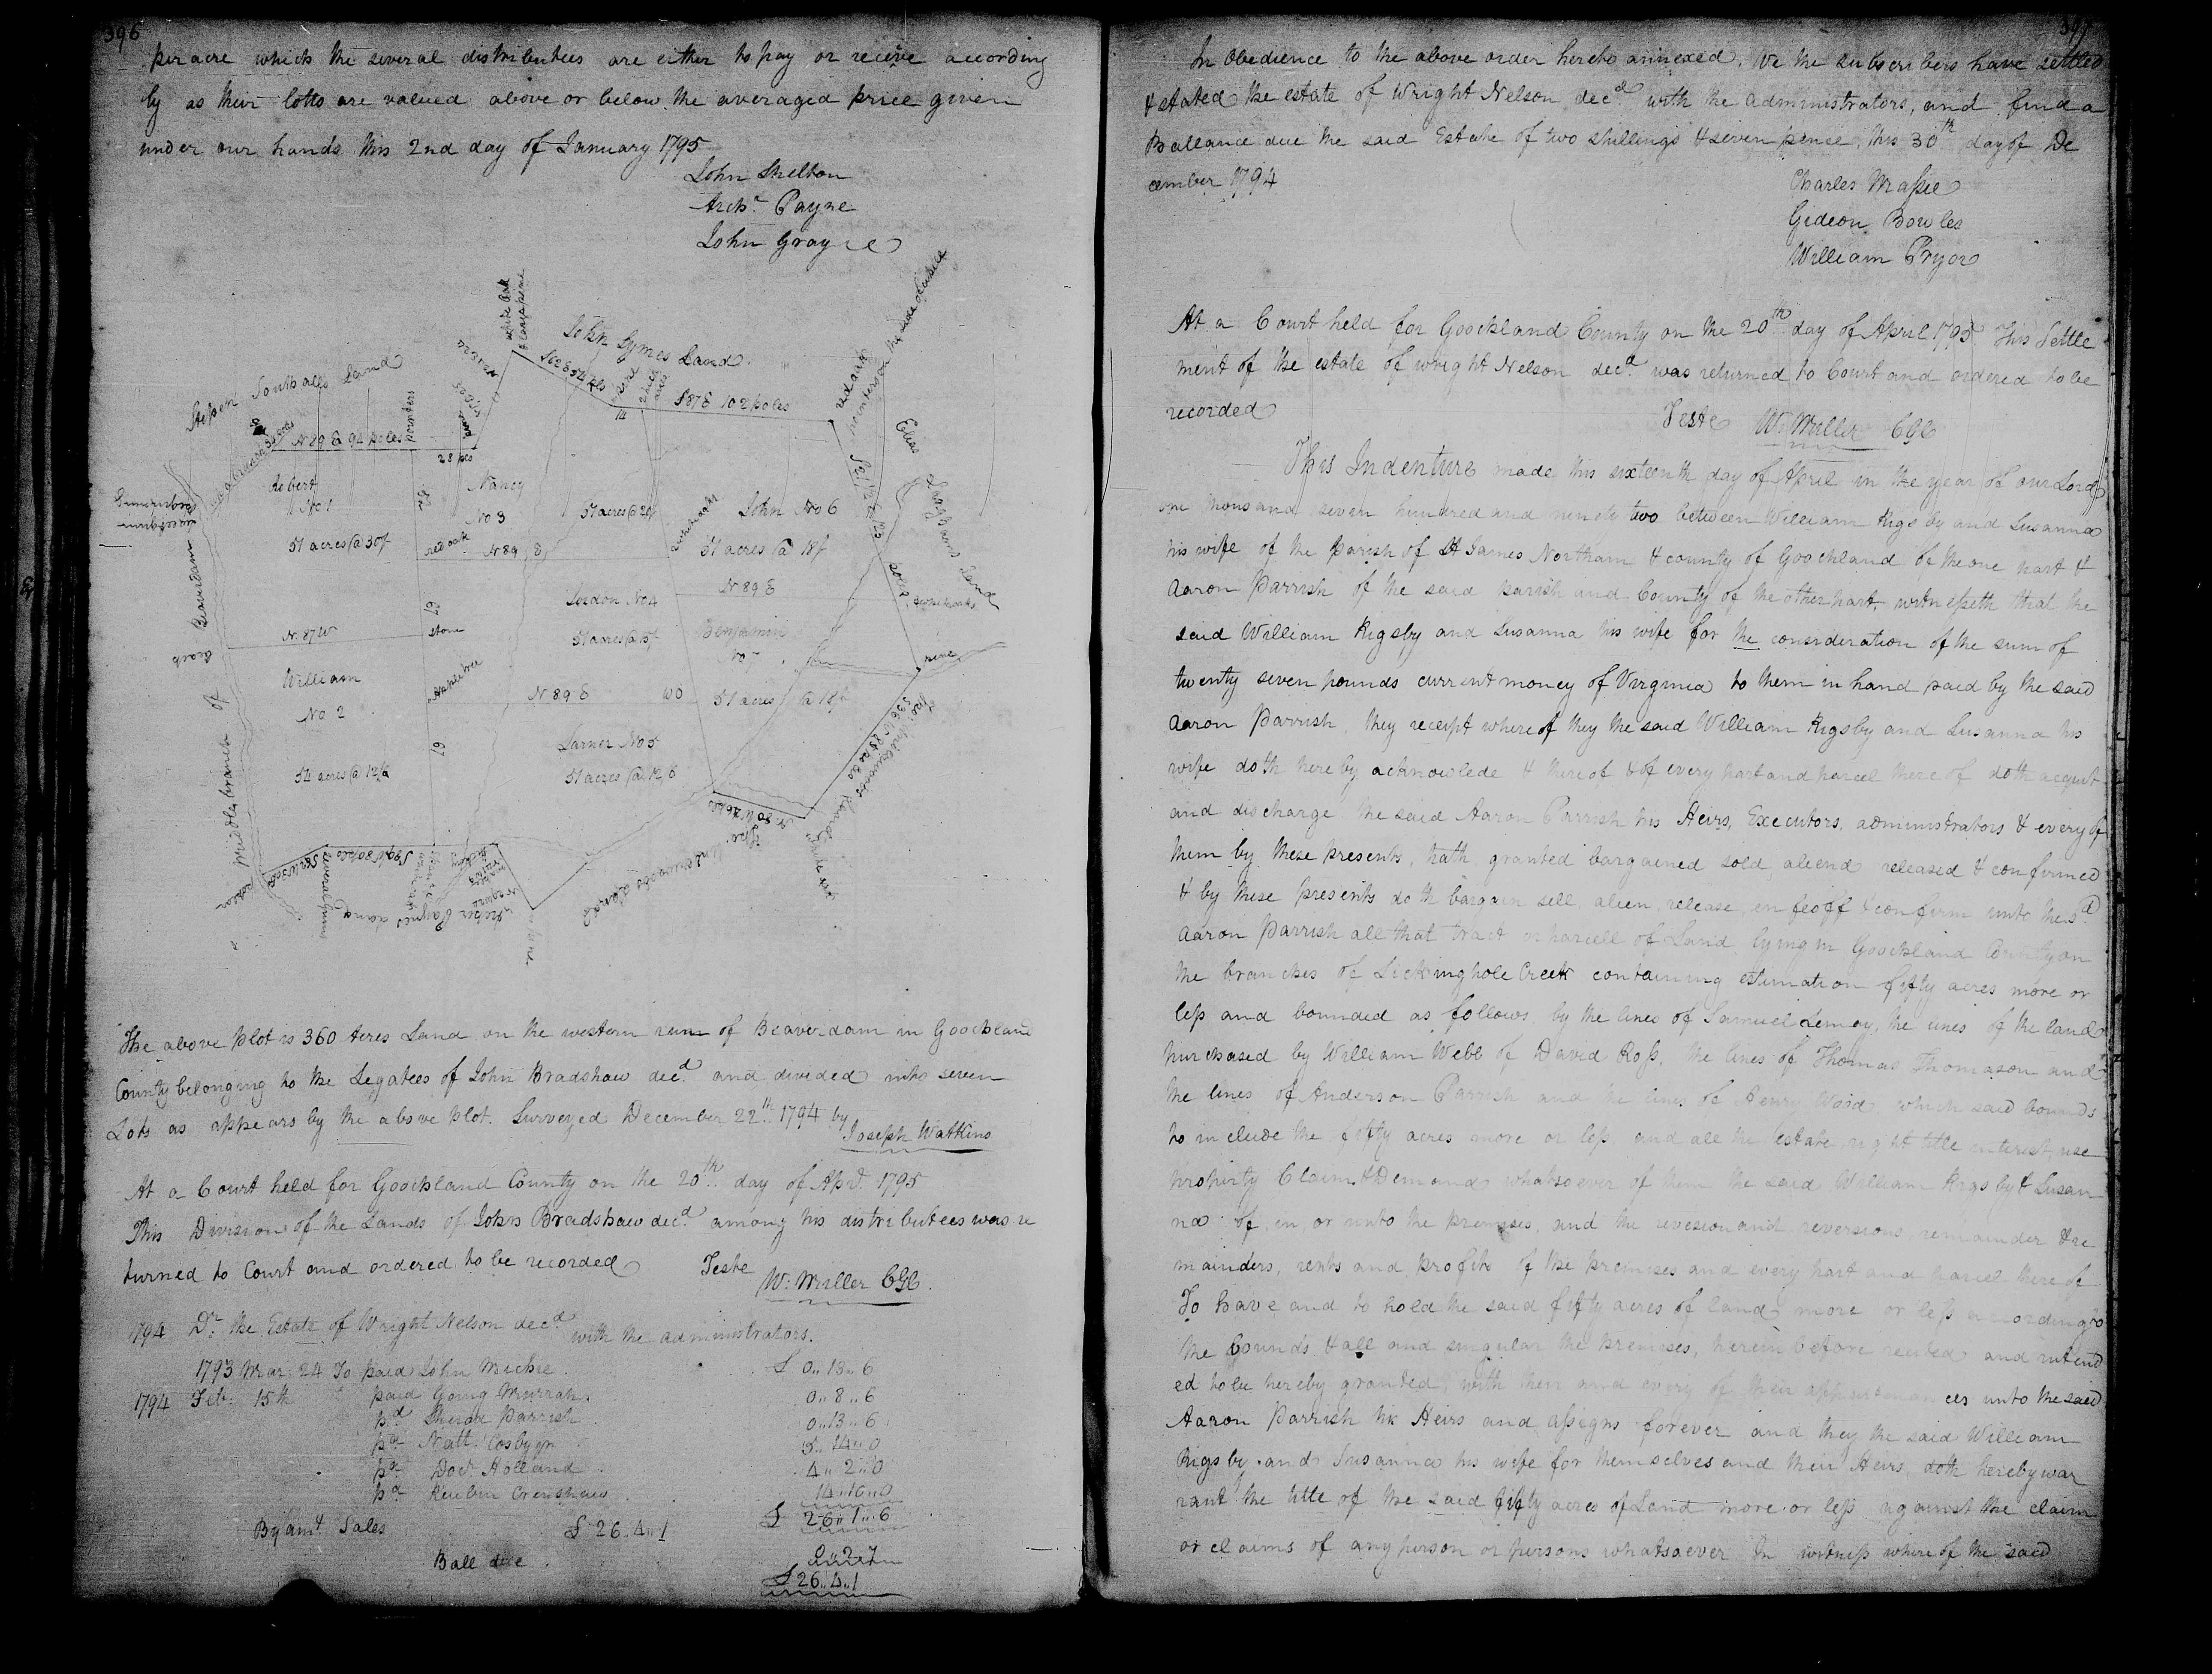 396
per acre which the several distributees are either to pay or receive according
ly as their lotts are valued above or below the averaged price given
under our hands this 2nd day of January 1795
John Shelton
Archr Payne
John Gray
white Oak
& large pine
John Symes Land
Stephen Southalls Land
S62E 54 pls
S87E 102 poles
14
red oak
N89E 94 poles
pointers
28 pls
Robert
No 1
51 acres @ 30/
Nancy
No 3
51 acres @ 20/
red oak
N 89 E
John No 6
51 acres @ 18/
N 89 E
Elias Langhams Land
No 4
51 acres @ 15/
Benjamin
No
51 acres @ 18/
pine
N. 87 W
67
stone
William
No 2
54 acres @ 12/6
N 89 E
67
No 5
51 acres @ 12/6
middle branch of Beaverdam Creek
Paynes Land
Underwoods Land
The above plot is 360 Acres Land on the western runn of Beaverdam in Goochland
County belonging to the Legatees of John Bradshaw decd. and divided into seven
Lots as appears by the above plot. Surveyed December 22th. 1794 by
Joseph Watkins
At a Court held for Goochland County on the 20th. day of Apr. 1795
This Division of the Lands of John Bradshaw decd. among his distributees was re
turned to Court and ordered to be recorded
Teste
W: Miller CGC.
1794 Dr. the Estate of Wright Nelson decd. with the administrators.
1793 Mar 24 To paid John Michie £ 0,, 13,, 6
1794 Feb. 15th paid Murrah 0,, 8,, 6
pd Parrish 0,, 13,, 6
pd Natt. Cosby jr 5,, 14,, 0
pd Doct. Holland 4,, 2,, 0
pd Reubin Crenshaw 14,, 10,, 0
£ 26,, 1,, 6
By amt Sales £ 26,, 4,, 1
Ball due 0,, 2,, 7
£ 26,, 4,, 1
397
In Obedience to the above order hereto annexed, We the subscribers have settled
& stated the estate of Wright Nelson decd. with the administrators, and find a
Ballance due the said Estate of two shillings & seven pence, this 30th day of De
cember 1794
Charles Massie
Gideon Bowles
William Pryor
At a Court held for Goochland County on the 20th day of April 1795 This Settle
ment of the estate of wright Nelson decd. was returned to Court and ordered to be
recorded
Teste W: Miller CGC
This Indenture made this sixteenth day of April in the year of our Lord
one thousand seven hundred and ninety two between William Rigsby and Susanna
his wife of the parish of St James Northam & county of Goochland of the one part &
Aaron Parrish of the said parish and County of the other part, witnesseth that the
said William Rigsby and Susanna his wife for the consideration of the sum of
twenty seven pounds current money of Virginia to them in hand paid by the said
Aaron Parrish, they receipt whereof they the said William Rigsby and Susanna his
wife doth hereby acknowlede & thereof & of every part and parcel thereof doth acquit
and discharge the said Aaron Parrish his Heirs, Executors, administrators & every of
them by these presents, hath granted bargained sold, aliend released & confirmed
& by these presents doth bargain sell, alien, release, enfeoff & confirm unto the sd
Aaron Parrish all that tract or parcell of Land lying in Goochland County on
the branches of Lickinghole Creek containing estimation fifty acres more or
less and bounded as follows by the lines of Samuel Lemay, the lines of the land
purchased by William Webb of David Ross, the lines of Thomas Thomason and
the lines of Anderson Parrish and the lines of Henry Wood, which said bounds
to include the fifty acres more or less and all the estate right title interest, use
propirty Claim & Demand whatsoever of them the said William Rigsby & Susan
na of, in, or unto the premises, and the revesion and reversions, remainder & re
mainders, rents and profits of the premises and every part and parcel there of
To have and to hold the said fifty acres of land more or less according to
the bounds & all and singular the premises, herein before recited and intend
ed to be hereby granted, with their and every of their appurtenances unto the said
Aaron Parrish his Heirs and assigns forever and they the said William
Rigsby and Susanna his wife for themselves and their Heirs, doth hereby war
rant the title of the said fifty acres of Land more or less against the claim
or claims of any person or persons whatsoever In witness whereof the said